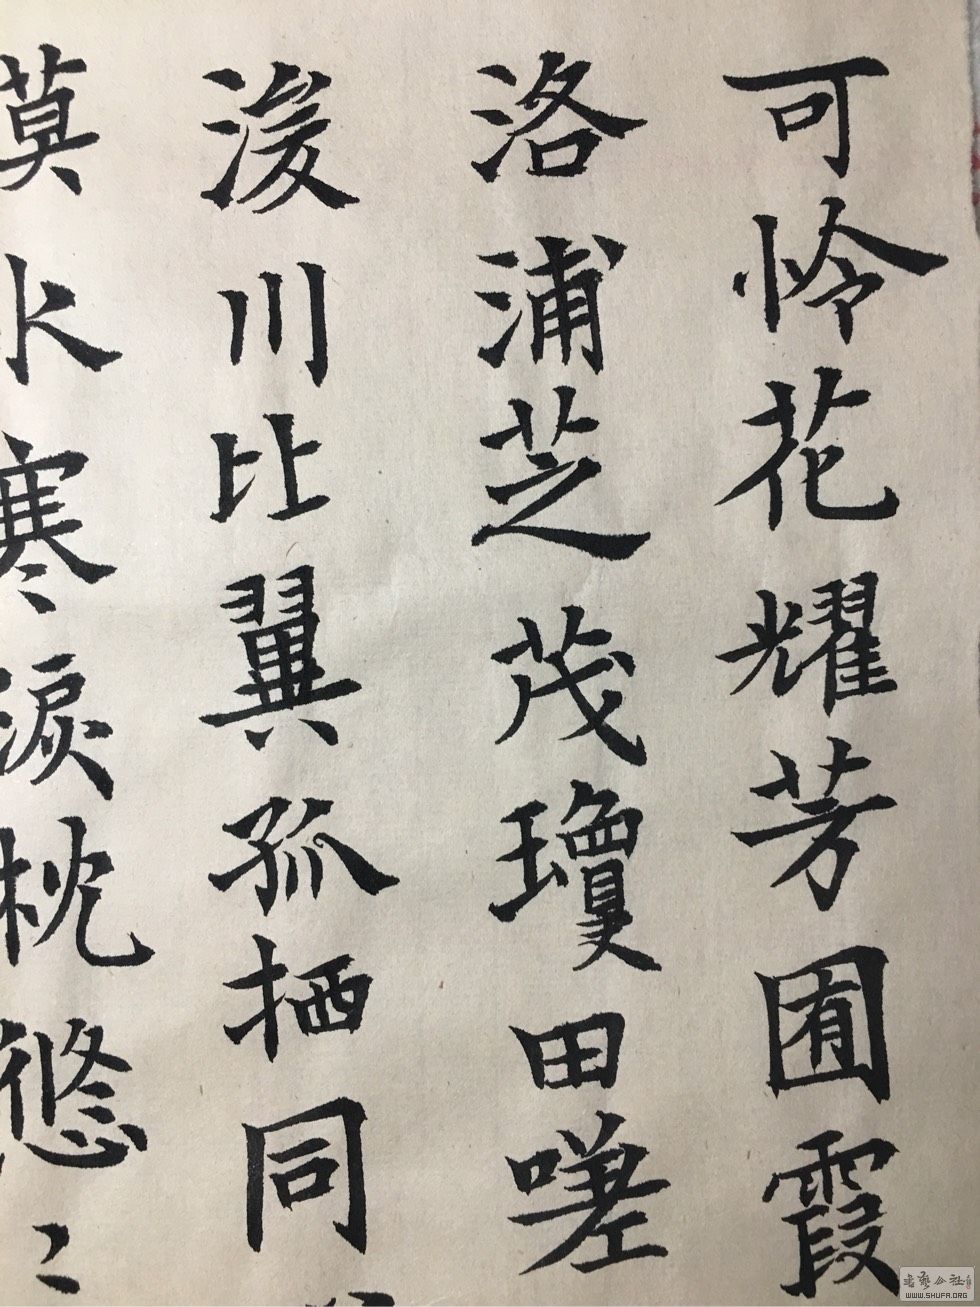 可怜花耀芳囿霞
洛浦芝茂瓊田嗟
湲川比翼孤栖同
莫水寒淚枕悠〻
WWW.SHUFA.ORG